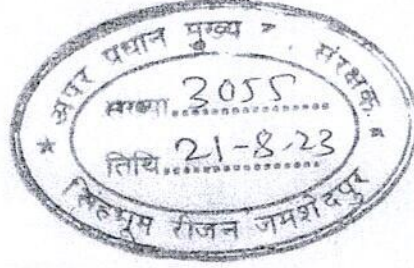 अपर प्रधान मुख्य
संरक्षक
संख्या 3055
तिथि 21-8-23
सिंहभूम रीजन जमशेदपुर